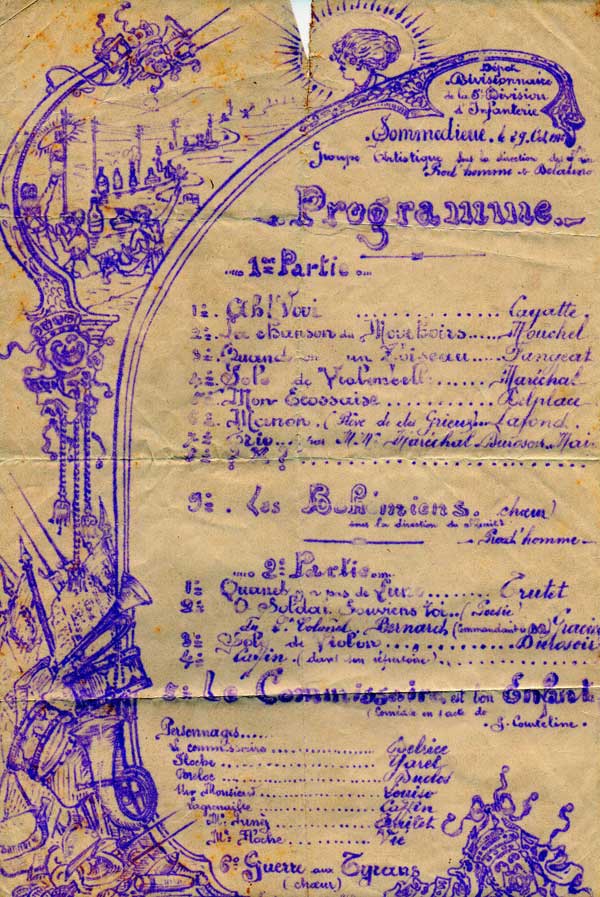 Dépot
Divisionnaire
de la 5e Division
d'Infanterie
Sommedieue, le 29 Oct
Groupe Artistique sous la direction des
Prod'homme et
Programme
1ère Partie
1º. Ah! Vovi .............. Cayatte
2º. La chanson du ..... Mouchet
3º. Quand un Oiseau..... Fangeat
4º. Solo de Violoncelle ....... Maréchal
7º. Mon Ecossaise........... Delplace
6º. Manon. (Rêve de des Grieux) Lafond.
7º. Trio.... par M.Mrs Maréchal
8º. ? ? ? ..............
9º. Les Bohémiens. chœur)
sous la direction de
Prod'homme
2e Partie
1º Quand y'a pas de Lune ......... Trutet
2º. O Soldat souviens toi.. (Poésie)
Lt Colonel Bernard (Commandant
3º. Solo de Violon ............ Durosoir
4º. (dans son répertoire) ..............
5º. Le Commissaire est bon Enfant
(Comédie en 1 acte de
G. Courteline.
Personnages.....
Le commissaire ................
Floche ................... Yaret
Breloc ....................
Un Monsieur ................ Louise
Lagrenaille ................
Mr Punèz ..................
Me Floche ............... Vié
6º Guerre aux Tyrans
(chœur)